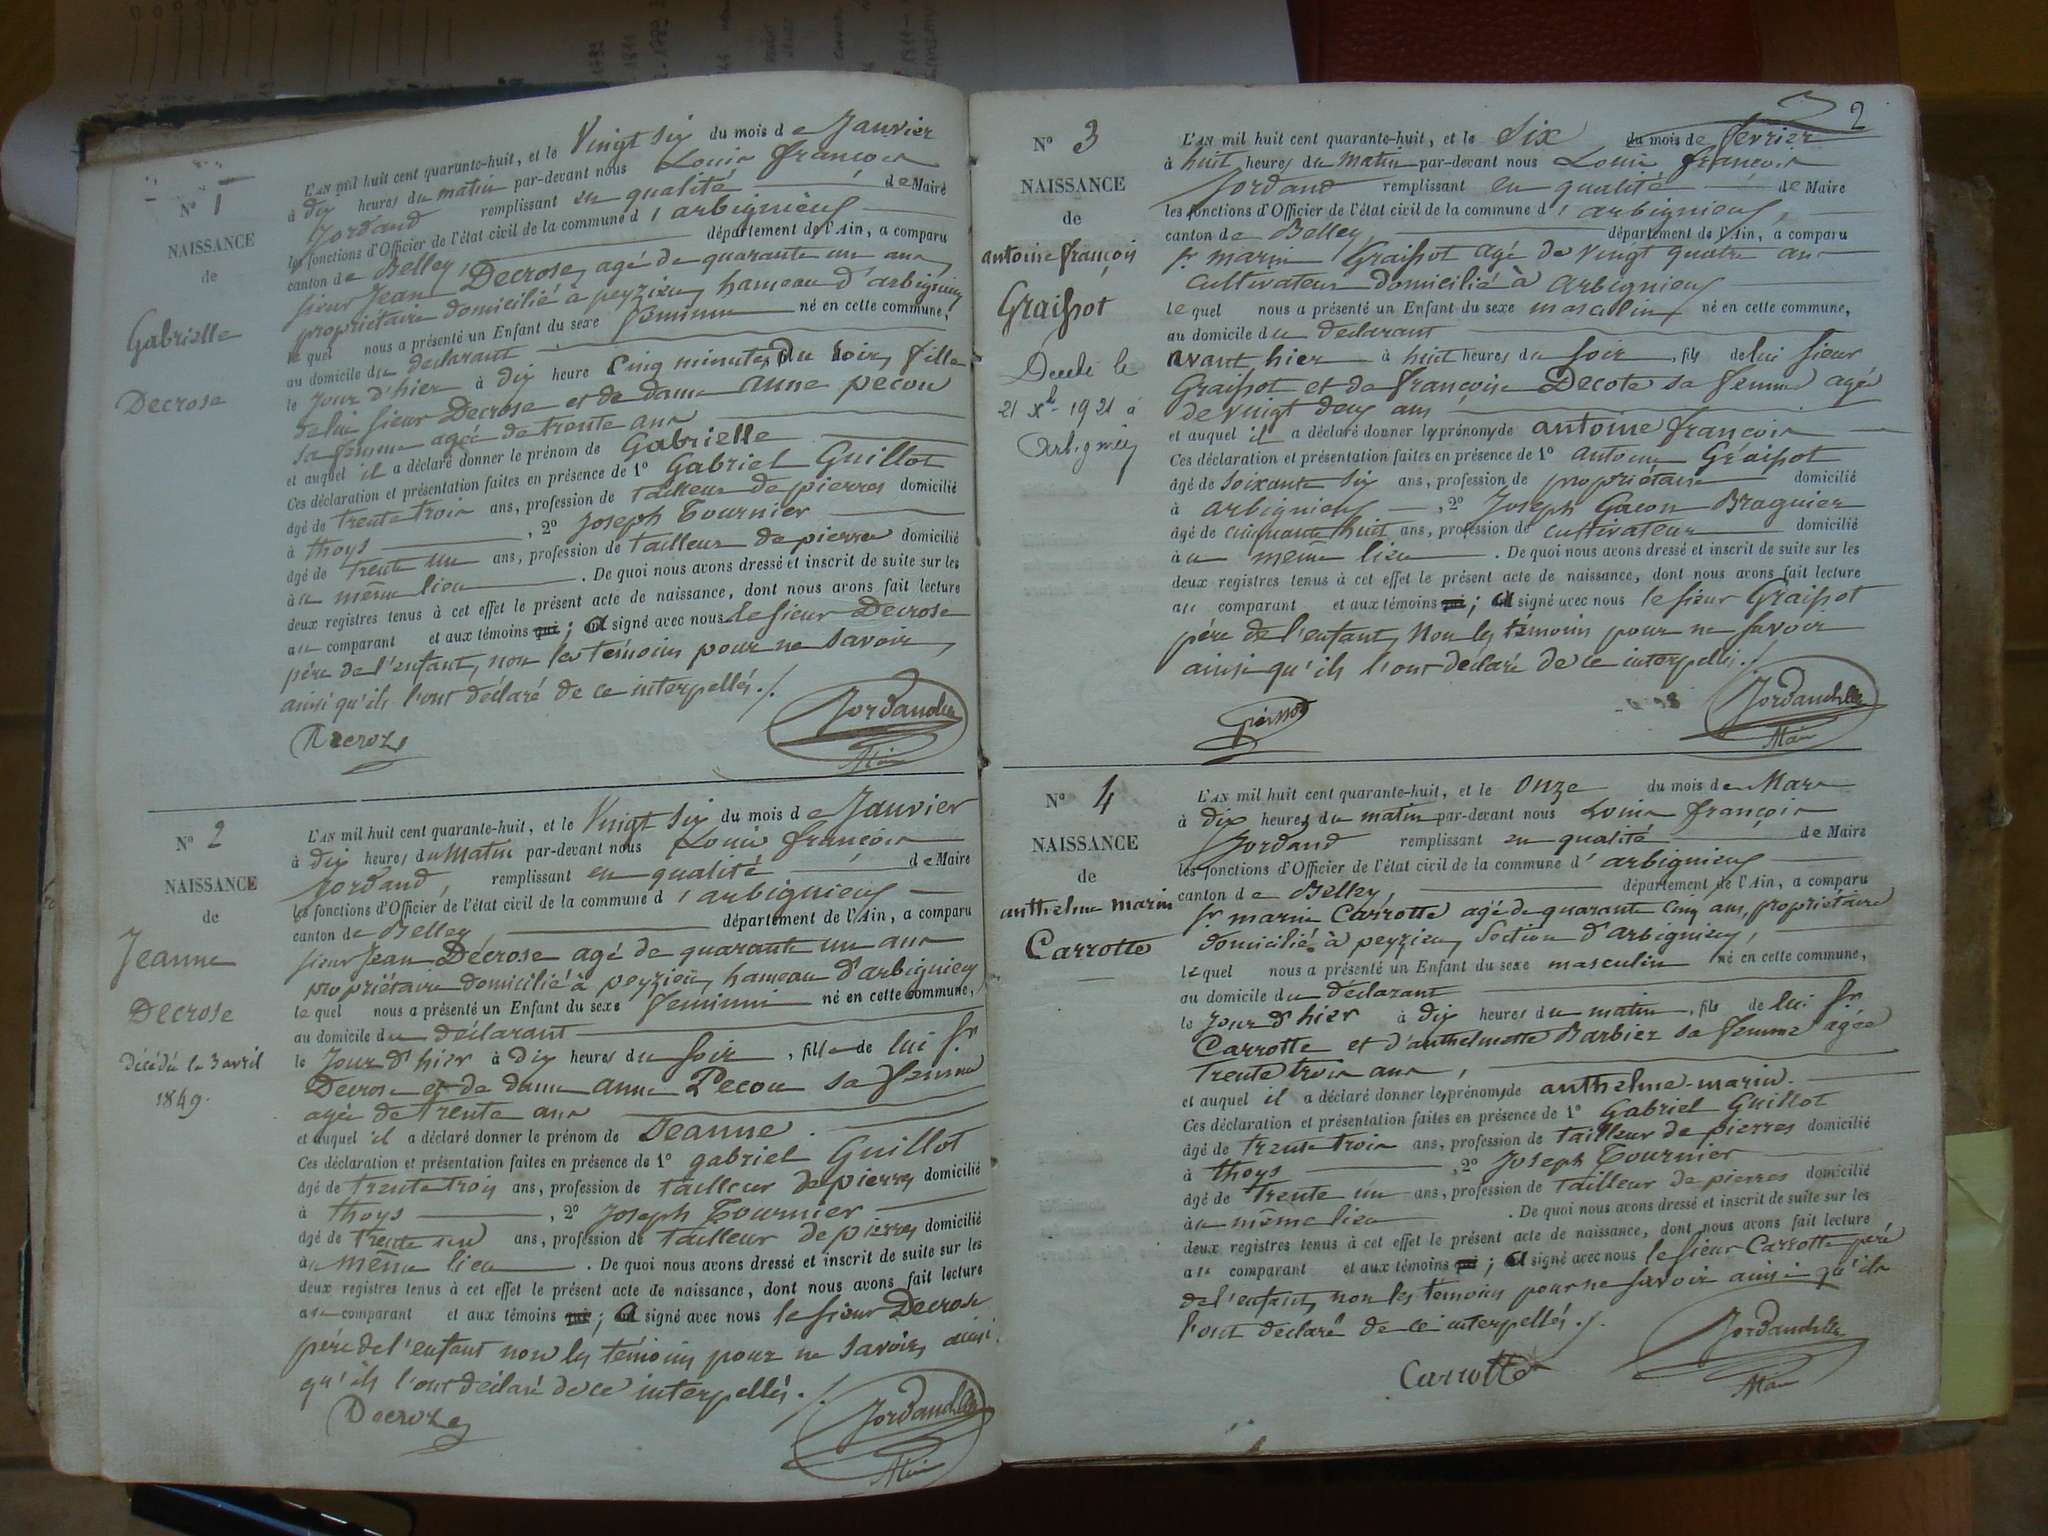 N° 1
NAISSANCE
de
Gabrielle
Decrose
L'AN mil huit cent quarante-huit, et le Vingt six du mois de Janvier
à dix heures du matin par-devant nous Louis françois
Jordand remplissant en qualité de Maire
les fonctions d'Officier de l'état civil de la commune d'arbignieux
canton de Belley, département de l'Ain, a comparu
sieur Jean Decrose, agé de quarante un ans
propriétaire domicilié à peyzieu, hameau d'arbignieu
lequel nous a présenté un Enfant du sexe féminin né en cette commune,
au domicile du déclarant
le jour d'hier à dix heure cinq minutes du soir, fille
de lui sieur Decrose et de dame anne pecou
sa femme agée de trente ans
et auquel il a déclaré donner le prénom de Gabrielle
Ces déclaration et présentation faites en présence de 1° Gabriel Guillot
âgé de trente trois ans, profession de tailleur de pierres domicilié
à thoys, 2° Joseph Tournier
âgé de trente un ans, profession de tailleur de pierres domicilié
au même lieu. De quoi nous avons dressé et inscrit de suite sur les
deux registres tenus à cet effet le présent acte de naissance, dont nous avons fait lecture
au comparant et aux témoins qui; et signé avec nous le sieur Decrose
père de l'enfant, non les témoins pour ne savoir,
ainsi qu'ils l'ont déclaré de ce interpellés./.
Decroze
Jordand
Maire
N° 2
NAISSANCE
de
Jeanne
Decrose
décédé le 3 avril
1849.
L'AN mil huit cent quarante-huit, et le Vingt six du mois de Janvier
à dix heures du Matin par-devant nous Louis françois
Jordand, remplissant en qualité de Maire
les fonctions d'Officier de l'état civil de la commune d'arbignieux
canton de Belley, département de l'Ain, a comparu
sieur Jean Décrose agé de quarante un ans
propriétaire domicilié à peyzieu, hameau d'arbignieu
lequel nous a présenté un Enfant du sexe feminin né en cette commune,
au domicile du déclarant
le jour d'hier à dix heures du soir, fille de lui Sr
Decrose et de dame anne Pecou sa femme
agée de trente ans
et auquel il a déclaré donner le prénom de Jeanne.
Ces déclaration et présentation faites en présence de 1° gabriel Guillot
âgé de trente trois ans, profession de tailleur de pierres domicilié
à thoys, 2° Joseph Tournier
âgé de trente un ans, profession de tailleur de pierres domicilié
au même lieu. De quoi nous avons dressé et inscrit de suite sur les
deux registres tenus à cet effet le présent acte de naissance, dont nous avons fait lecture
au comparant et aux témoins qui; et signé avec nous le sieur Decrose
père de l'enfant non les témoins pour ne savoir, ainsi
qu'ils l'ont déclaré de ce interpellés./.
Decroze
Jordand
Maire
2
N° 3
NAISSANCE
de
antoine françois
Graissot
Decede le
21 Xb 1921 à
Arbignieu
L'AN mil huit cent quarante-huit, et le Six du mois de fevrier
à huit heures du matin par-devant nous Louis françois
Jordand remplissant en qualité de Maire
les fonctions d'Officier de l'état civil de la commune d'arbignieux,
canton de Belley, département de l'Ain, a comparu
Sr marin Graissot agé de vingt quatre ans
cultivateur domicilié à arbignieux
lequel nous a présenté un Enfant du sexe masculin né en cette commune,
au domicile du declarant
avant hier à huit heures du soir, fils de lui sieur
Graissot et de françoise Decote sa femme agée
de vingt deux ans
et auquel il a déclaré donner les prénoms de antoine françois
Ces déclaration et présentation faites en présence de 1° antoine Graissot
âgé de soixante six ans, profession de propriétaire domicilié
à arbignieux, 2° Joseph Gacon Braguier
âgé de cinquante huit ans, profession de cultivateur domicilié
au même lieu. De quoi nous avons dressé et inscrit de suite sur les
deux registres tenus à cet effet le présent acte de naissance, dont nous avons fait lecture
au comparant et aux témoins qui; et signé avec nous le sieur Graissot
père de l'enfant, Non les témoins pour ne savoir
ainsi qu'ils l'ont déclaré de ce interpellés./.
Jordand
Maire
N° 4
NAISSANCE
de
anthelme marin
Carrotte
L'AN mil huit cent quarante-huit, et le onze du mois de Mars
à dix heures du matin par-devant nous Louis françois
Jordand remplissant en qualité de Maire
les fonctions d'Officier de l'état civil de la commune d'arbignieux
canton de Belley, département de l'Ain, a comparu
Sr marin Carrotte agé de quarante cinq ans, propriétaire
domicilié à peyzieu, Section d'arbignieu,
lequel nous a présenté un Enfant du sexe masculin né en cette commune,
au domicile du déclarant
le jour d'hier à dix heures du matin, fils de lui Sr
Carrotte et d'anthelmette Barbier sa femme agée
trente trois ans,
et auquel il a déclaré donner les prénoms de anthelme-marin.
Ces déclaration et présentation faites en présence de 1° Gabriel Guillot
âgé de trente trois ans, profession de tailleur de pierres domicilié
à thoys, 2° Joseph Tournier
âgé de trente un ans, profession de tailleur de pierres domicilié
au même lieu. De quoi nous avons dressé et inscrit de suite sur les
deux registres tenus à cet effet le présent acte de naissance, dont nous avons fait lecture
au comparant et aux témoins qui; et signé avec nous le sieur Carrotte père
de l'enfant, non les temoins pour ne savoir ainsi qu'ils
l'ont déclaré de ce interpellés./.
Carrotte
Jordand
Maire